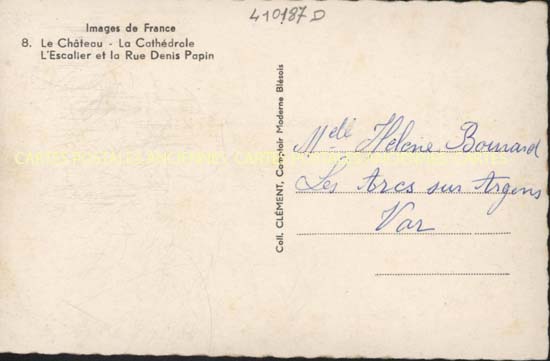 410187 D
Images de France
8. Le Château - La Cathédrale
L'Escalier et la Rue Denis Papin
Coll. CLÉMENT, Comptoir Moderne Blésois
Melle Helene Bonnard
Les Arcs sur Argens
Var
CARTES POSTALES ANCIENNES CARTES POSTALES ANCIENNES